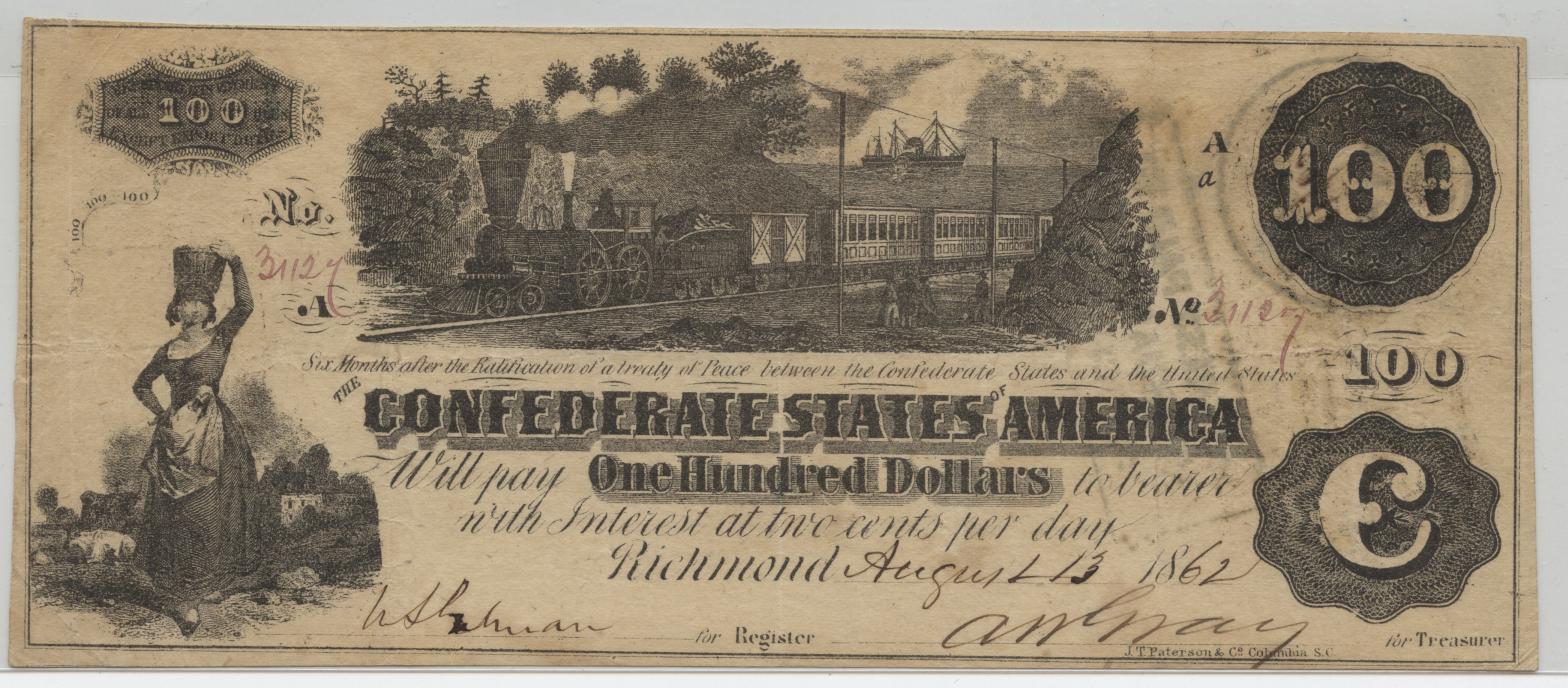 100
100 100 100
No.
31127
A
A
a
100
No 31127
100
Six Months after the Ratification of a treaty of Peace between the Confederate States and the United States
THE CONFEDERATE STATES OF AMERICA
Will pay One Hundred Dollars to bearer
with Interest at two cents per day
Richmond August 13 1862
C
for Register
for Treasurer
J.T. Paterson & Co Columbia S.C.